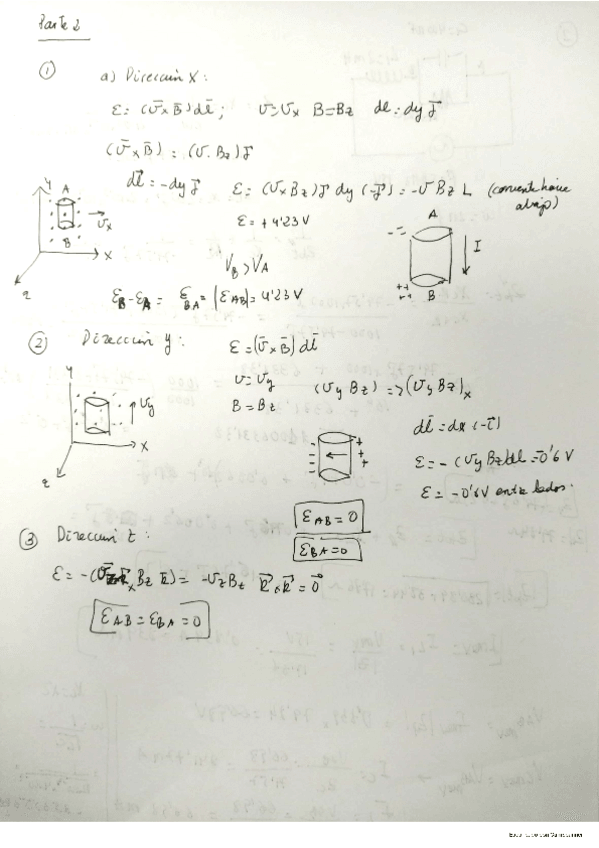 Parte 2
① a) Dirección X:
ε = (v̄ x B̄) dl̄ ; v = vx B = Bz dl = dy j⃗
(v̄ x B̄) = (v. Bz) j⃗
dl̄ = -dy j⃗ ε = (vx Bz) j⃗ dy (-j⃗) = -v Bz L (corriente hacia abajo)
ε = +4'23 V
y A B vx x z
A -- I ++ B
VB > VA
εB - εA = εBA = |εAB| = 4'23 V
② Dirección y: ε = (v̄ x B̄) dl̄
v = vy (vy Bz) => (vy Bz)x
B = Bz
y vy x z
dl̄ = dx (-i⃗)
ε = - (vy Bz) dl = -0'6 V
ε = -0'6 V entre lados.
εAB = 0
εBA = 0
③ Dirección z:
ε = - Bz k⃗) = -vz Bz k⃗ x k⃗ = 0⃗
εAB = εBA = 0